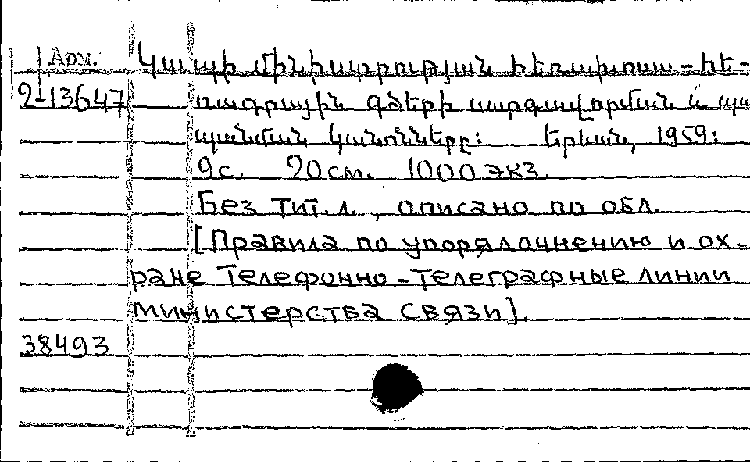 Арм. Կապի մինիստրության հեռախոս-հե-
2-13647 ռագրային գծերի կարգավորման և պա
պանման կանոնները: Երևան, 1959:
9с. 20см. 1000 экз.
Без тит. л., описано по обл.
[Правила по упорядочнению и ох-
ране телефонно-телеграфные линии
министерства связи].
38493